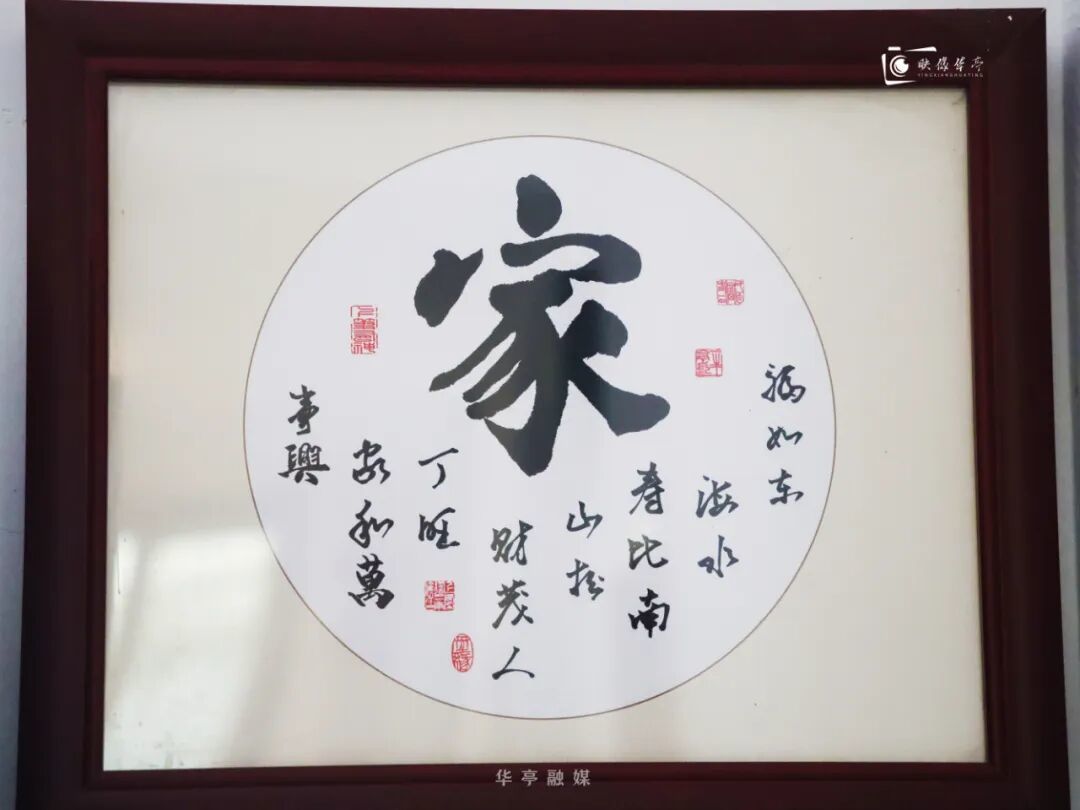 映像华亭
YINGXIANGHUATING
家
福如东
海水
寿比南
山松
财茂人
丁旺
家和萬
事興
华亭融媒